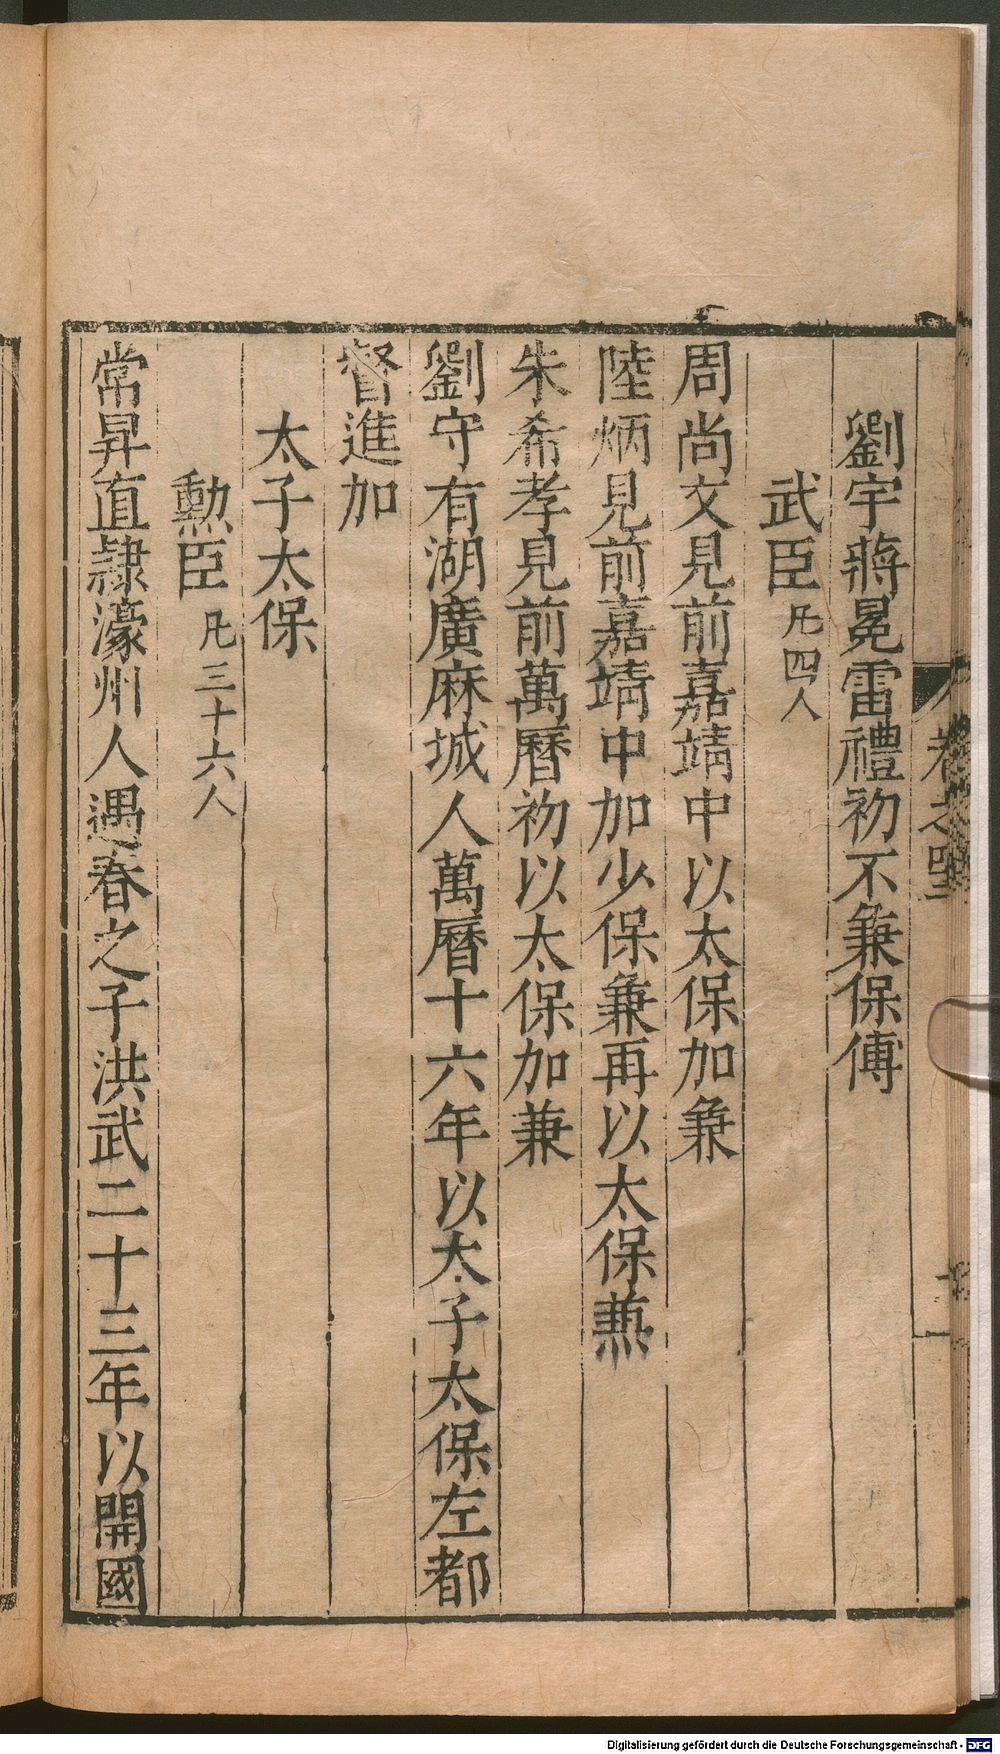 劉宇蔣冕雷禮初不兼保傅
武臣凡四人
周尚文見前嘉靖中以太保加兼
陸炳見前嘉靖中加少保兼再以太保兼
朱希孝見前萬曆初以太保加兼
劉守有湖廣麻城人萬曆十六年以太子太保左都
督進加
太子太保
勳臣凡三十六人
常昇直隸濠州人遇春之子洪武二十三年以開國
Digitalisierung gefördert durch die Deutsche Forschungsgemeinschaft - DFG